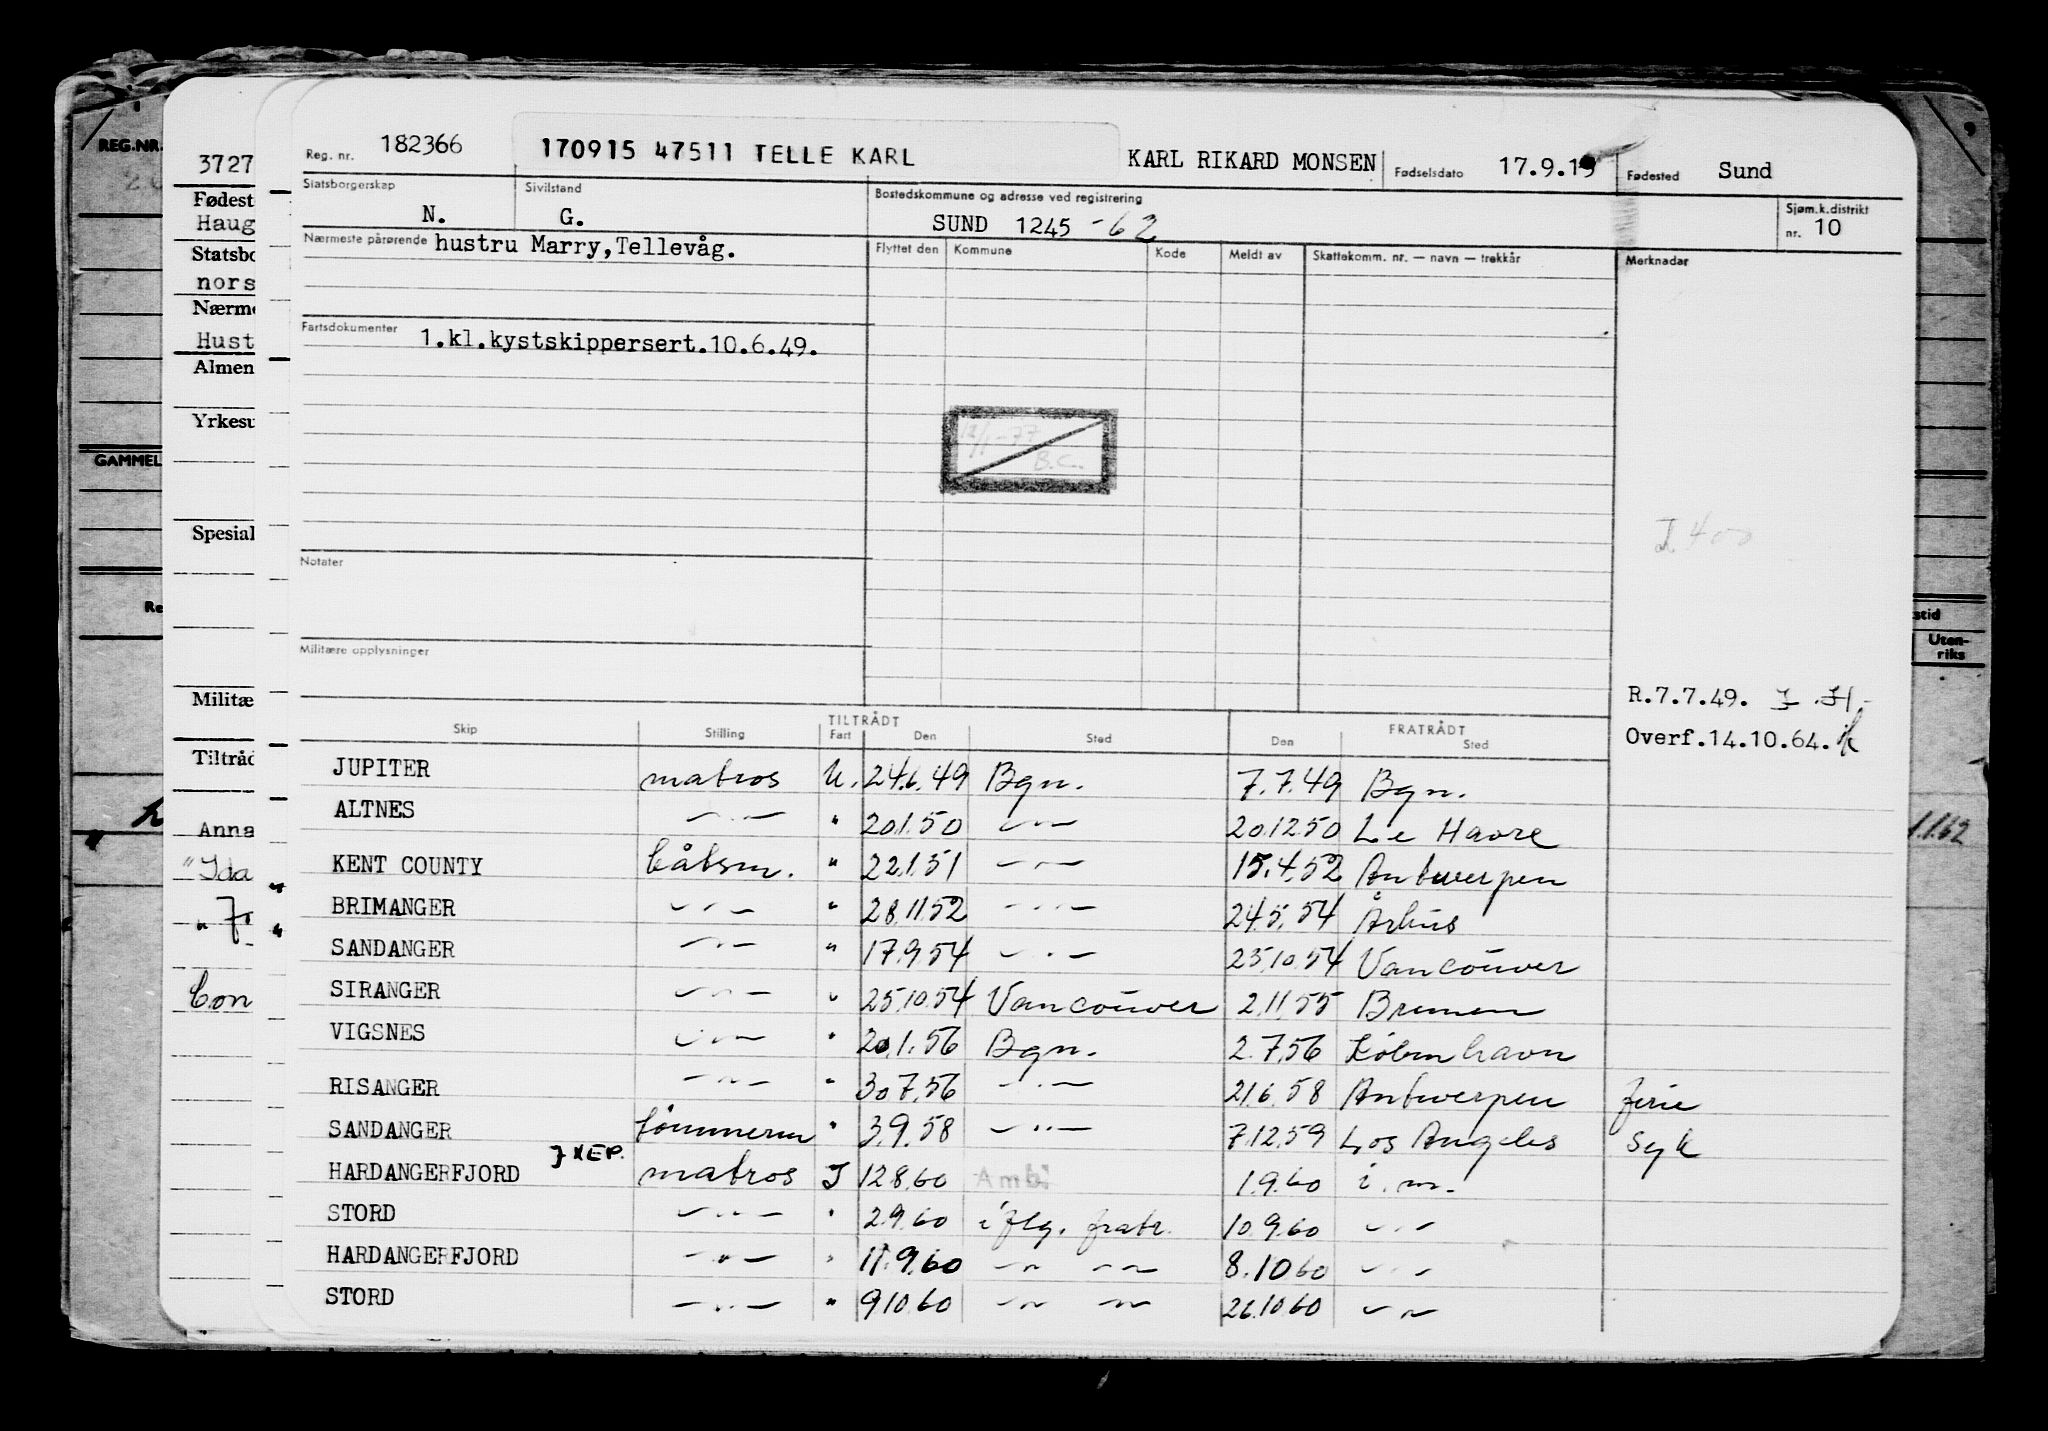 REG.NR.
3727
Fødest
Haug
Statsbo
nors
Nærme
Hust
Almen
Yrkesu
GAMMEL
Spesial
Re
Militæ
Tiltråd
Anna
"Ida
Con
Reg. nr. 182366 170915 47511 TELLE KARL KARL RIKARD MONSEN Fødselsdato 17.9.15 Fødested Sund
Statsborgerskap N. Sivilstand G. Bostedskommune og adresse ved registrering SUND 1245 -62 Sjøm.k.distrikt nr. 10
Nærmeste pårørende hustru Marry, Tellevåg. Flyttet den Kommune Kode Meldt av Skattekomm. nr. — navn — trekkår Merknader
Fartsdokumenter 1.kl.kystskippersert.10.6.49.
12/1-77
B.C.
I 400
Notater
Militære opplysninger
R.7.7.49.
Overf.14.10.64.
TILTRÅDT FRATRÅDT
Skip Stilling Fart Den Sted Den Sted
JUPITER matros U. 24.6.49 Bgn. 7.7.49 Bgn.
ALTNES —"— " 20.1.50 —"— 20.12.50 Le Havre
KENT COUNTY båtsm. " 22.1.51 —"— 15.4.52 Antwerpen
BRIMANGER —"— " 28.11.52 —"— 24.5.54 Århus
SANDANGER —"— " 17.9.54 —"— 25.10.54 Vancouver
SIRANGER —"— " 25.10.54 Vancouver 2.11.55 Bremen
VIGSNES —"— " 20.1.56 Bgn. 2.7.56 København
RISANGER —"— " 30.7.56 —"— 21.6.58 Antwerpen ferie
SANDANGER tømmerm " 3.9.58 —"— 7.12.59 Los Angeles syk
HARDANGERFJORD JXEP. matros I 12.8.60 Amb: 1.9.60 i.m.
STORD —"— " 2.9.60 i flg. fratr. 10.9.60 —"—
HARDANGERFJORD —"— " 11.9.60 —"— —"— 8.10.60 —"—
STORD —"— " 9.10.60 —"— —"— 26.10.60 —"—
stid
Uten-
riks
1.1.62